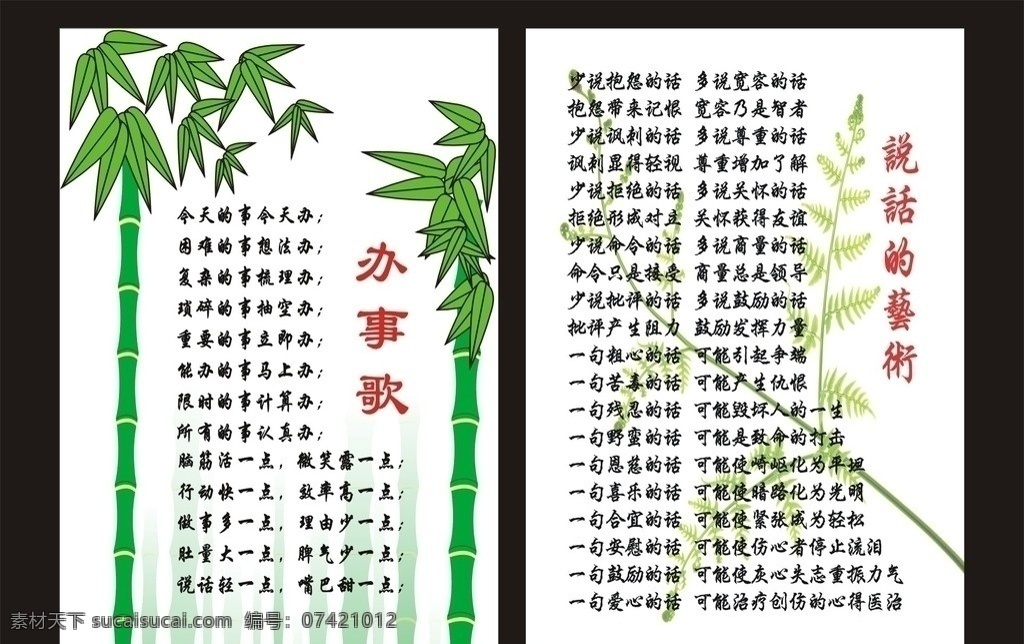 办事歌
今天的事今天办；
困难的事想法办；
复杂的事梳理办；
琐碎的事抽空办；
重要的事立即办；
能办的事马上办；
限时的事计算办；
所有的事认真办；
脑筋活一点，微笑露一点；
行动快一点，效率高一点；
做事多一点，理由少一点；
肚量大一点，脾气少一点；
说话轻一点，嘴巴甜一点；
說話的藝術
少说抱怨的话 多说宽容的话
抱怨带来记恨 宽容乃是智者
少说讽刺的话 多说尊重的话
讽刺显得轻视 尊重增加了解
少说拒绝的话 多说关怀的话
拒绝形成对立 关怀获得友谊
少说命令的话 多说商量的话
命令只是接受 商量总是领导
少说批评的话 多说鼓励的话
批评产生阻力 鼓励发挥力量
一句粗心的话 可能引起争端
一句苦毒的话 可能产生仇恨
一句残忍的话 可能毁坏人的一生
一句野蛮的话 可能是致命的打击
一句恩慈的话 可能使崎岖化为平坦
一句喜乐的话 可能使暗路化为光明
一句合宜的话 可能使紧张成为轻松
一句安慰的话 可能使伤心者停止流泪
一句鼓励的话 可能使灰心失志重振力气
一句爱心的话 可能治疗创伤的心得医治
素材天下 sucaisucai.com 编号：07421012